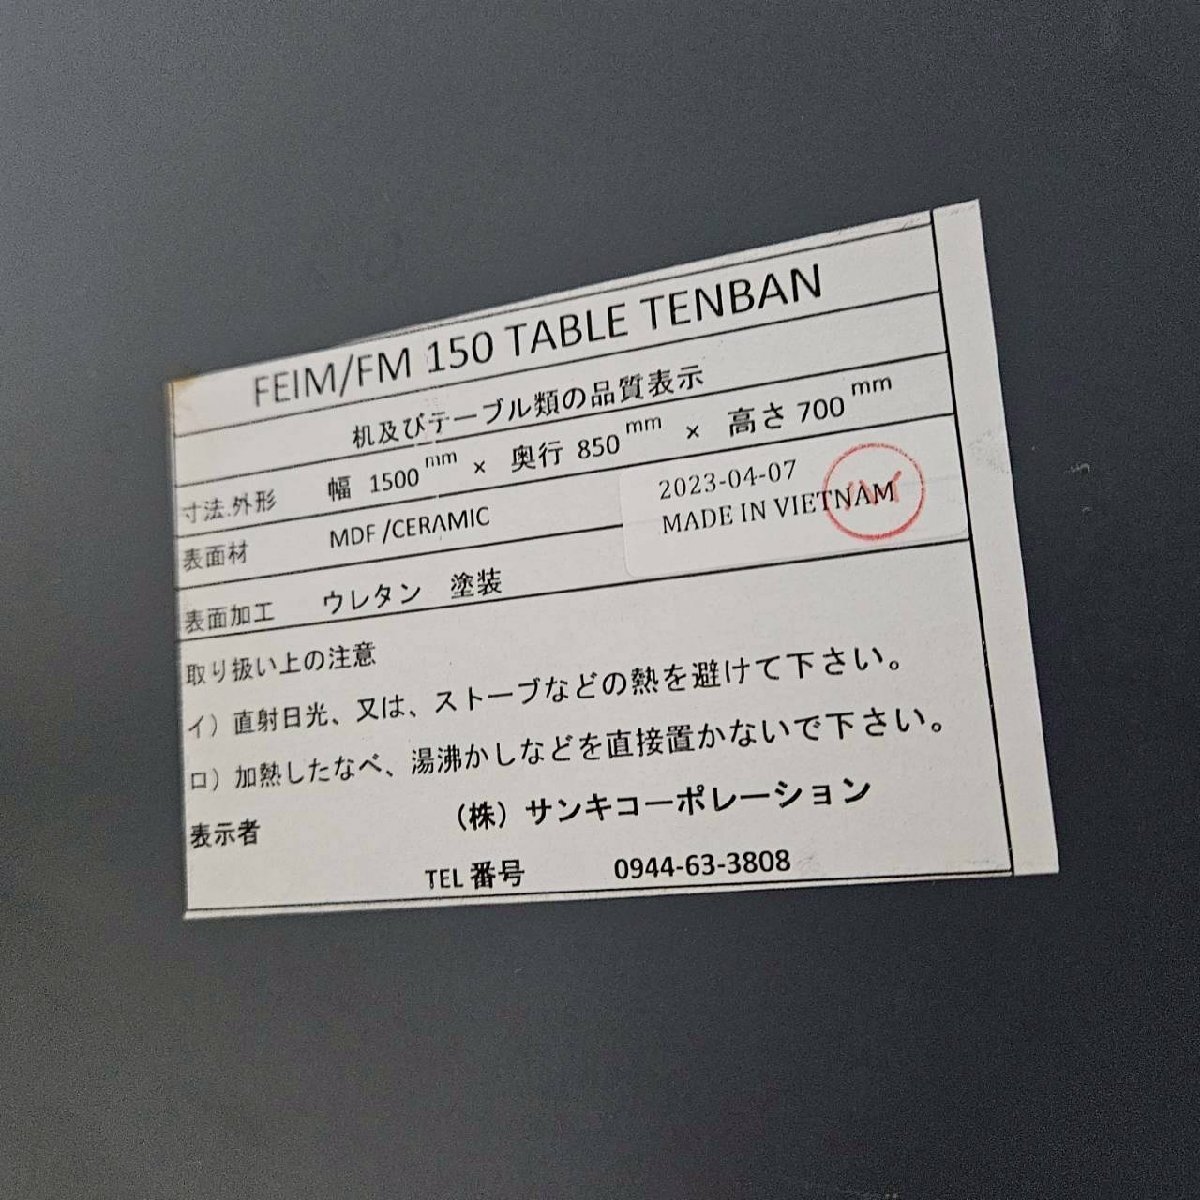 FEIM/FM 150 TABLE TENBAN
机及びテーブル類の品質表示
寸法.外形 幅 1500mm × 奥行 850mm × 高さ 700mm
表面材 MDF /CERAMIC
2023-04-07
MADE IN VIETNAM
表面加工 ウレタン 塗装
取り扱い上の注意
イ）直射日光、又は、ストーブなどの熱を避けて下さい。
ロ）加熱したなべ、湯沸かしなどを直接置かないで下さい。
表示者 （株）サンキコーポレーション
TEL 番号 0944-63-3808